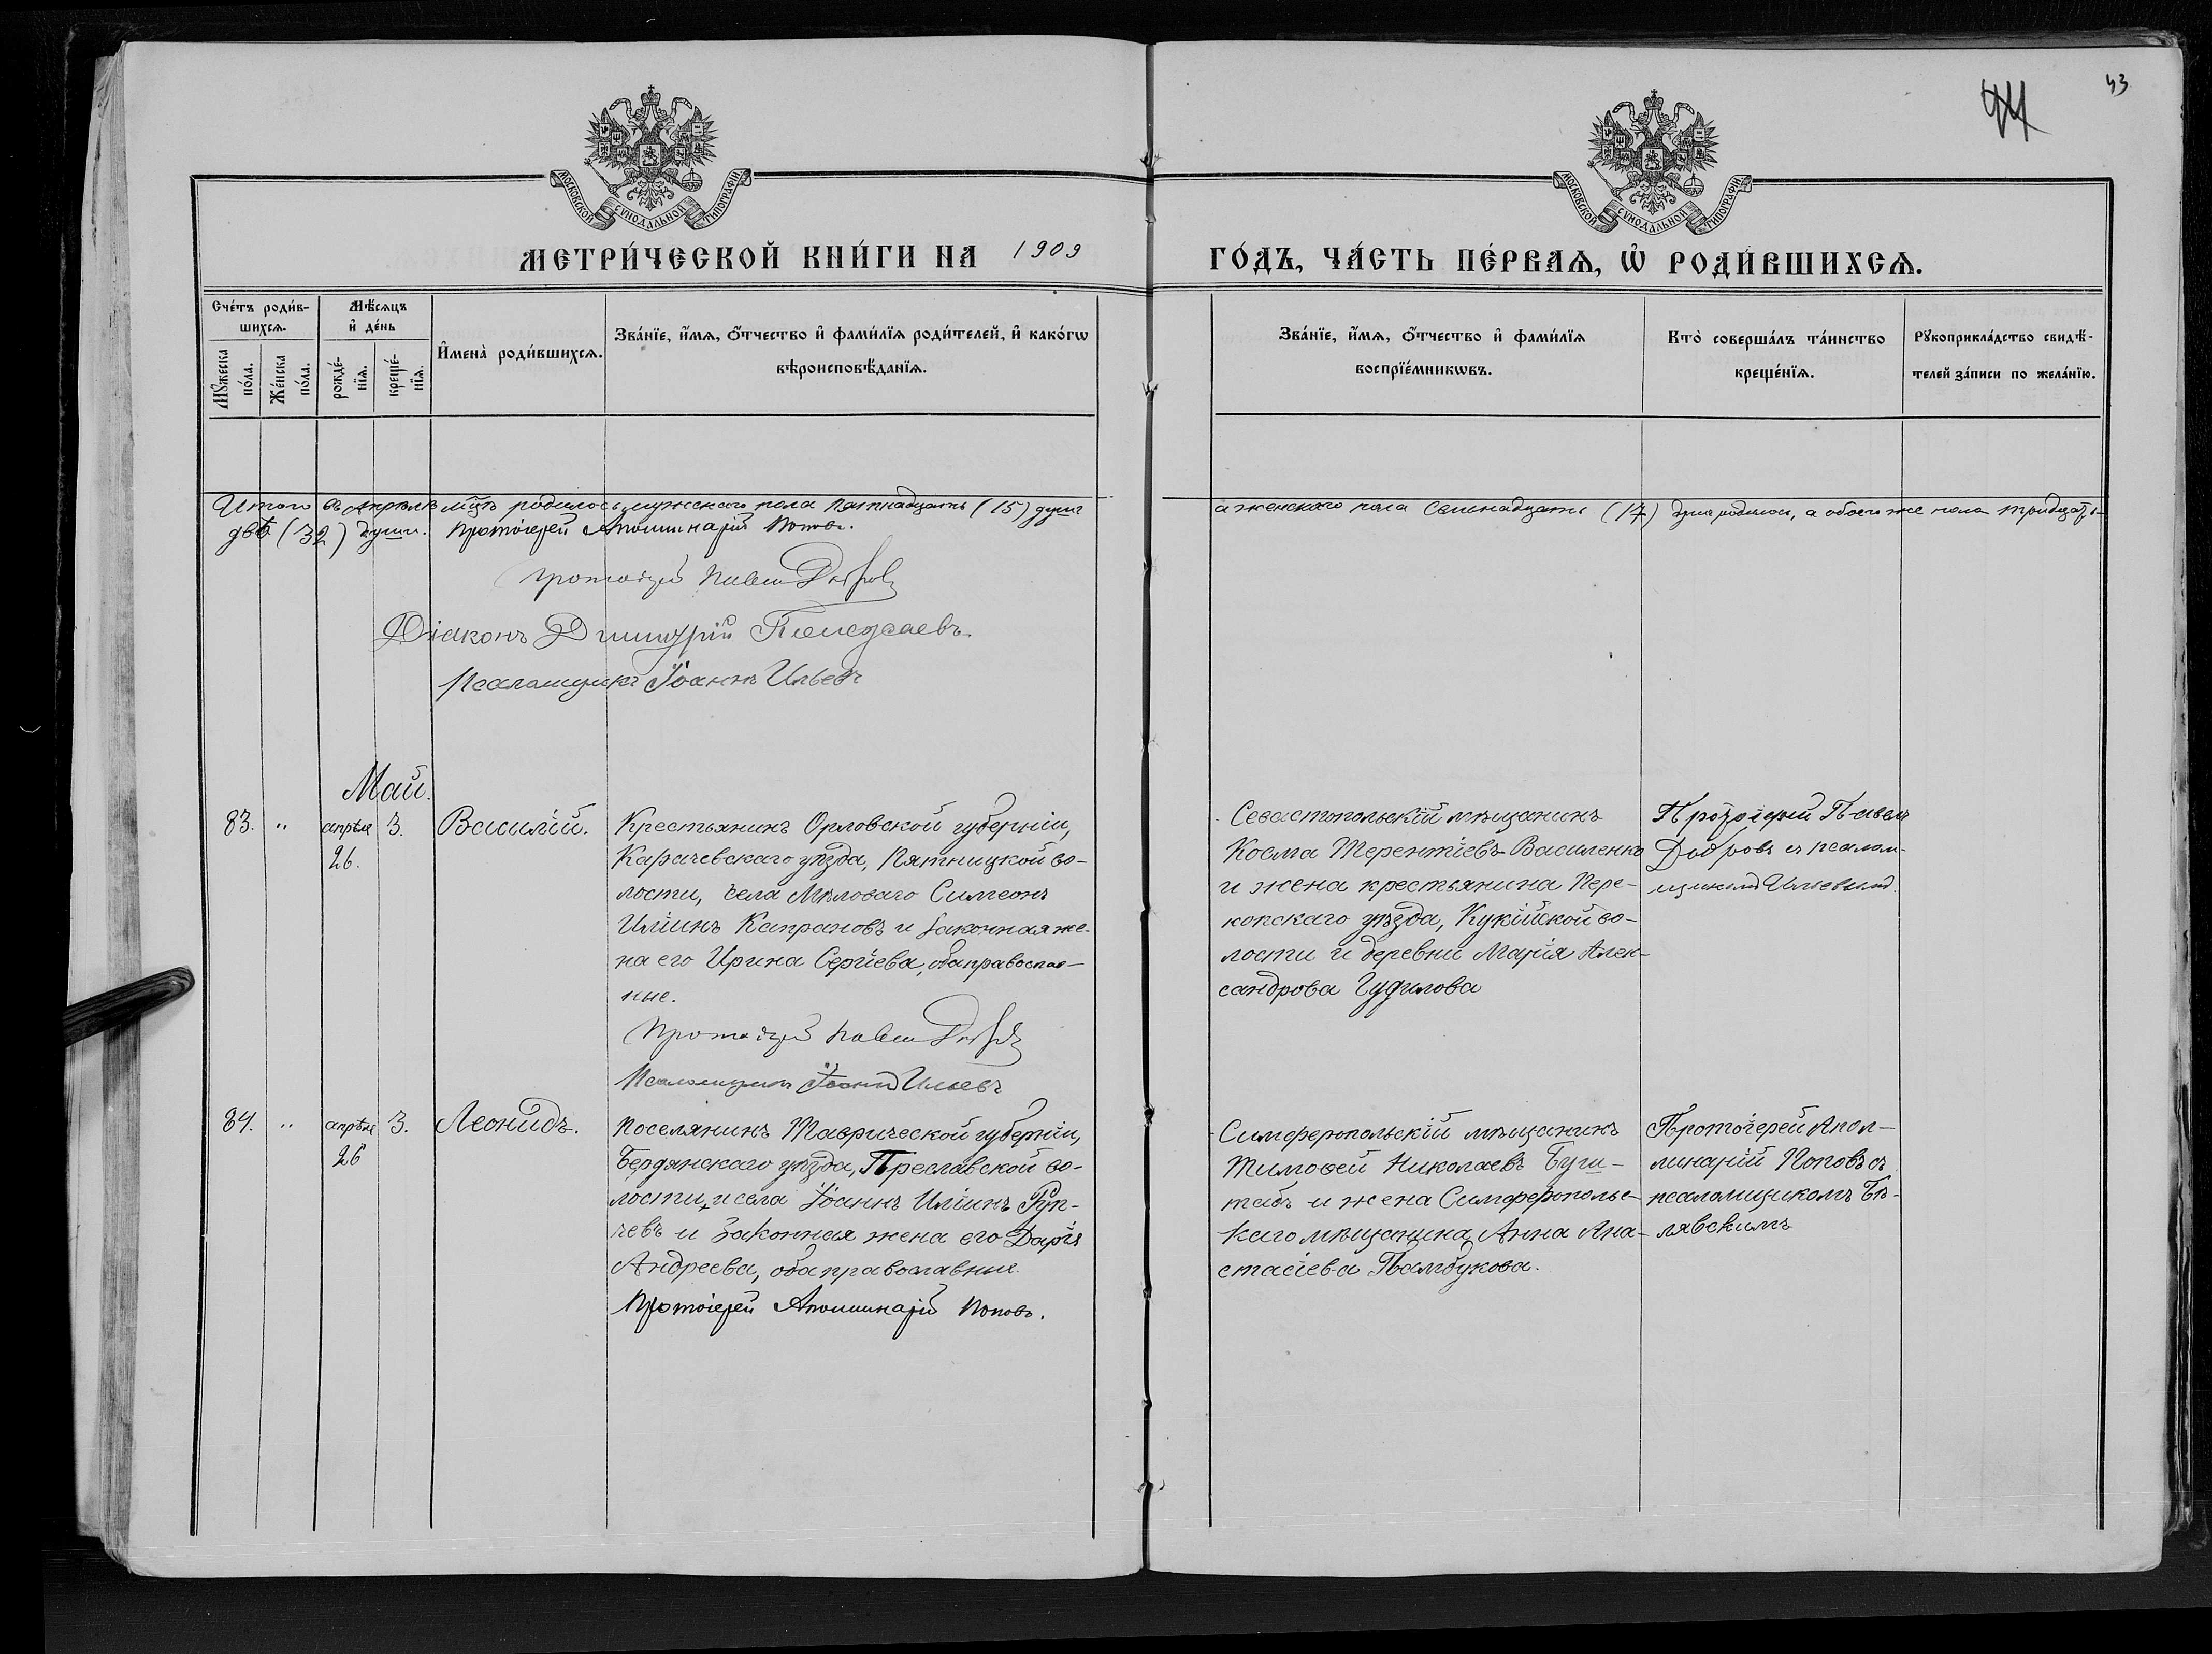 44
43
МОСКОВСКОЙ СѴНОДАЛЬНОЙ ТИПОГРАФІИ
МОСКОВСКОЙ СѴНОДАЛЬНОЙ ТИПОГРАФІИ
МЕТРИ́ЧЕСКОЙ КНИ́ГИ НА 1909 ГО́ДЪ, ЧА́СТЬ ПЕ́РВАѦ, Ѡ҆ РОДИ́ВШИХСѦ.
Сче́тъ роди́в-
шихсѧ.
Мꙋ́жеска
по́ла.
Же́нска
по́ла.
Мѣ́сѧцъ
и҆ де́нь
рожде́-
нїѧ.
креще́-
нїѧ.
И҆мена̀ роди́вшихсѧ.
Зва́нїе, и҆́мѧ, ѻ҆́тчество и҆ фами́лїѧ роди́телей, и҆ како́гѡ
вѣроисповѣ́данїѧ.
Зва́нїе, и҆́мѧ, ѻ҆́тчество и҆ фами́лїѧ
воспрїе́мникѡвъ.
Кто̀ соверша́лъ та́инство
креще́нїѧ.
Рꙋкоприкла́дство свидѣ́-
телей за́писи по жела́нїю.
Итого въ Апрѣлѣ мцѣ родилось мужескаго пола пятнадцать (15) душъ
а женскаго пола семнадцать (17) душъ родилось, а обоего же пола тридцать
двѣ (32) души. Протоіерей Аполлинарій Поповъ.
Протоіерей Павелъ Добровъ
Діаконъ Димитрій
Псаломщикъ Іоаннъ Ильевъ
Май.
83. " апрѣля 3. Василій.
26.
Крестьянинъ Орловской губерніи,
Карачевскаго уѣзда, Пятницкой во-
лости, села Мѣловаго Симеонъ
Иліинъ Капрановъ и законная же-
на его Ирина Сергіева, оба православ-
ные.
Протоіерей Павелъ Добровъ
Псаломщикъ Іоаннъ Ильевъ
Севастопольскій мѣщанинъ
Косма Терентіевъ Василенко
и жена крестьянина Пере-
копскаго уѣзда, Кукійской во-
лости и деревни Марія Алек-
сандрова Гудилова
Протоіерей Павелъ
Добровъ съ псалом-
щикомъ Ильевымъ.
84. " апрѣля 3. Леонидъ.
26
Поселянинъ Таврической губерніи,
Бердянскаго уѣзда, Преславской во-
лости и села Іоаннъ Иліинъ Руп-
чевъ и законная жена его Дарія
Андреева, оба православные.
Протоіерей Аполлинарій Поповъ.
Симферопольскій мѣщанинъ
Тимоѳей Николаевъ Буги-
табъ и жена Симферопольс-
каго мѣщанина Анна Ана-
стасіева Памбукова.
Протоіерей Апол-
линарій Поповъ съ
псаломщикомъ Бѣ-
лявскимъ